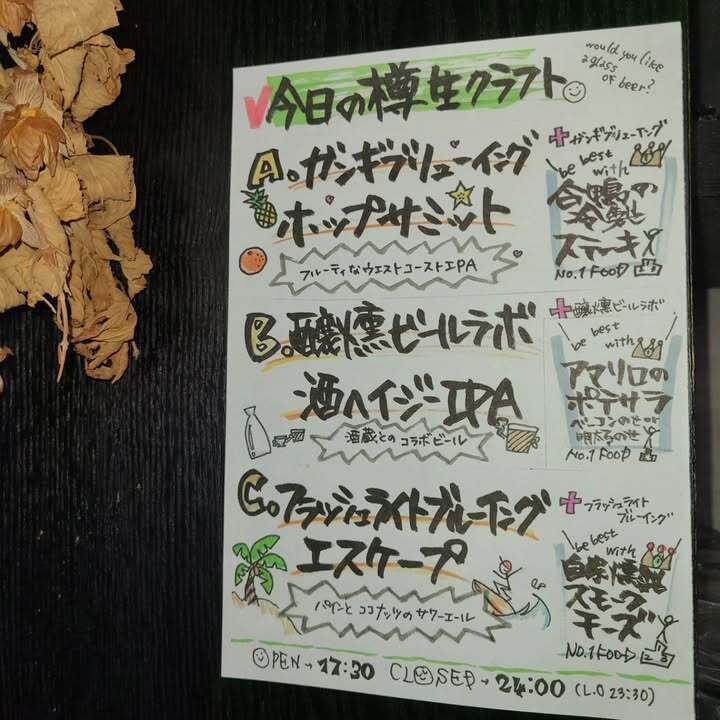 今日の樽生クラフト
would you like
a glass
of beer?
A.ガンギブリューイング
ホップサミット
フルーティなウエストコーストIPA
+ガンギブリューイング
be best
with
合鴨の
冷燻
ステーキ
NO.1 FOOD
B.醸燻ビールラボ
酒ヘイジーIPA
酒蔵とのコラボビール
+醸燻ビールラボ
be best
with
アマリロの
ポテサラ
ベーコンのせor
明太のせ
NO.1 FOOD
C.フラッシュライトブルーイング
エスケープ
パインとココナッツのサワーエール
+フラッシュライト
ブルーイング
be best
with
自家燻製
スモーク
チーズ
NO.1 FOOD
OPEN→17:30 CLOSED→24:00 (L.O 23:30)